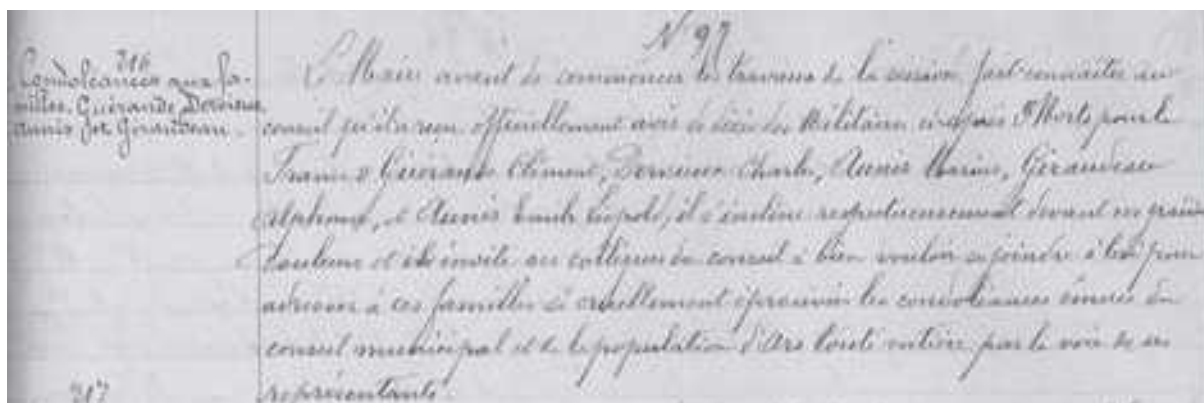 N° 97
316
Condoléances aux fa-
milles Guérande, Dervieux
Aunis fet Giraudeau.
Le Maire avant de commencer les travaux de la session fait connaître au
conseil qu'il a reçu officiellement avis de décès des Militaires ci-après "Morts pour la
France" Guérande Clément, Dervieux Charles, Aunis Marius, Giraudeau
Alphonse, & Aunis Emile Léopold, il s'incline respectueusement devant ces grandes
douleurs et invite ses collègues du conseil à bien vouloir se joindre à lui pour
adresser à ces familles si cruellement éprouvées les condoléances émues du
conseil municipal et de la population d'Ars toute entière par la voix de ses
représentants.
317